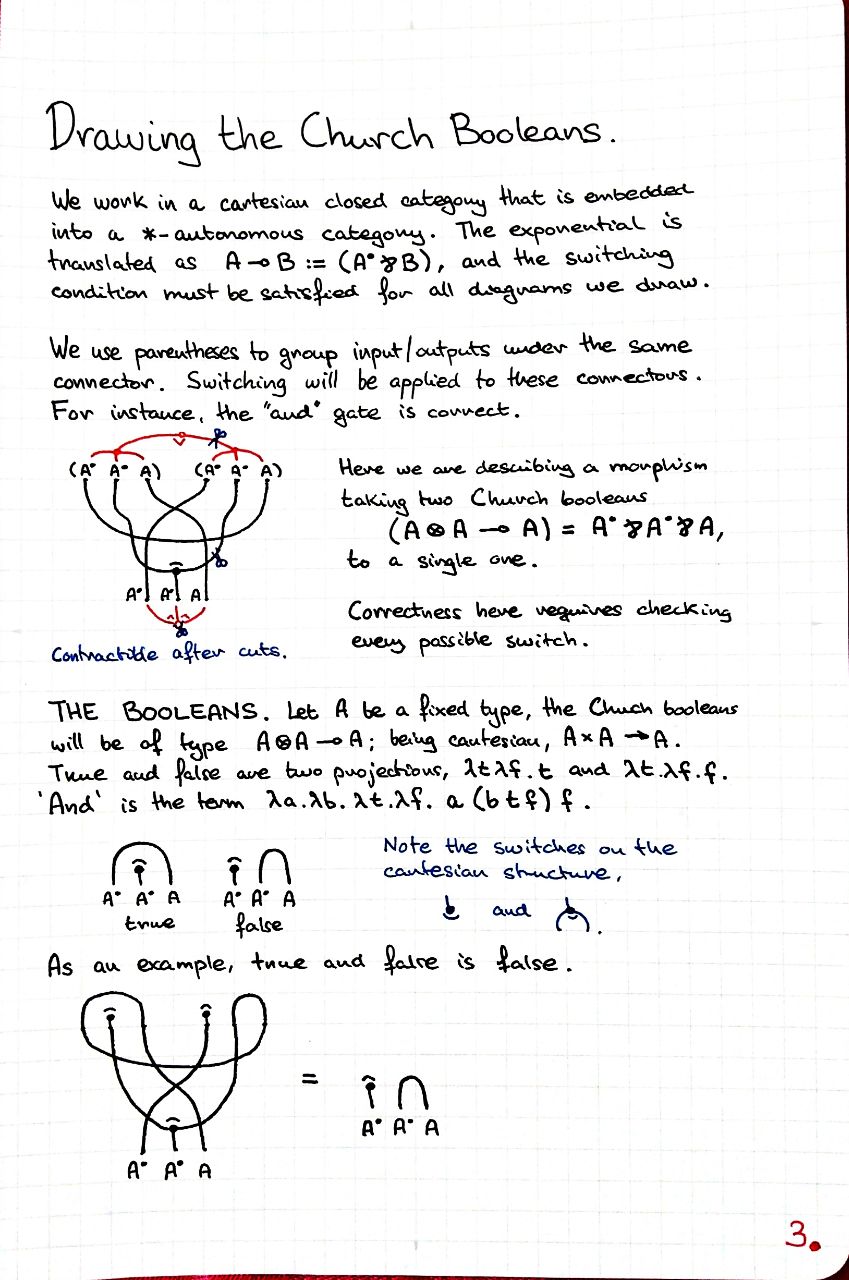 Drawing the Church Booleans.
We work in a cartesian closed category that is embedded
into a *-autonomous category. The exponential is
translated as A ⊸ B := (A• ⅋ B), and the switching
condition must be satisfied for all diagrams we draw.
We use parentheses to group input/outputs under the same
connector. Switching will be applied to these connectors.
For instance, the "and" gate is correct.
(A• A• A) (A• A• A)
A• A• A
Contractible after cuts.
Here we are describing a morphism
taking two Church booleans
(A ⊗ A ⊸ A) = A• ⅋ A• ⅋ A,
to a single one.
Correctness here requires checking
every possible switch.
THE BOOLEANS. Let A be a fixed type, the Chuch booleans
will be of type A⊗A ⊸ A; being cartesian, A×A → A.
True and false are two projections, λt λf. t and λt. λf. f.
'And' is the term λa. λb. λt. λf. a (b t f) f.
A• A• A
true
A• A• A
false
Note the switches on the
cartesian structure,
and .
As an example, true and false is false.
A• A• A
=
A• A• A
3.